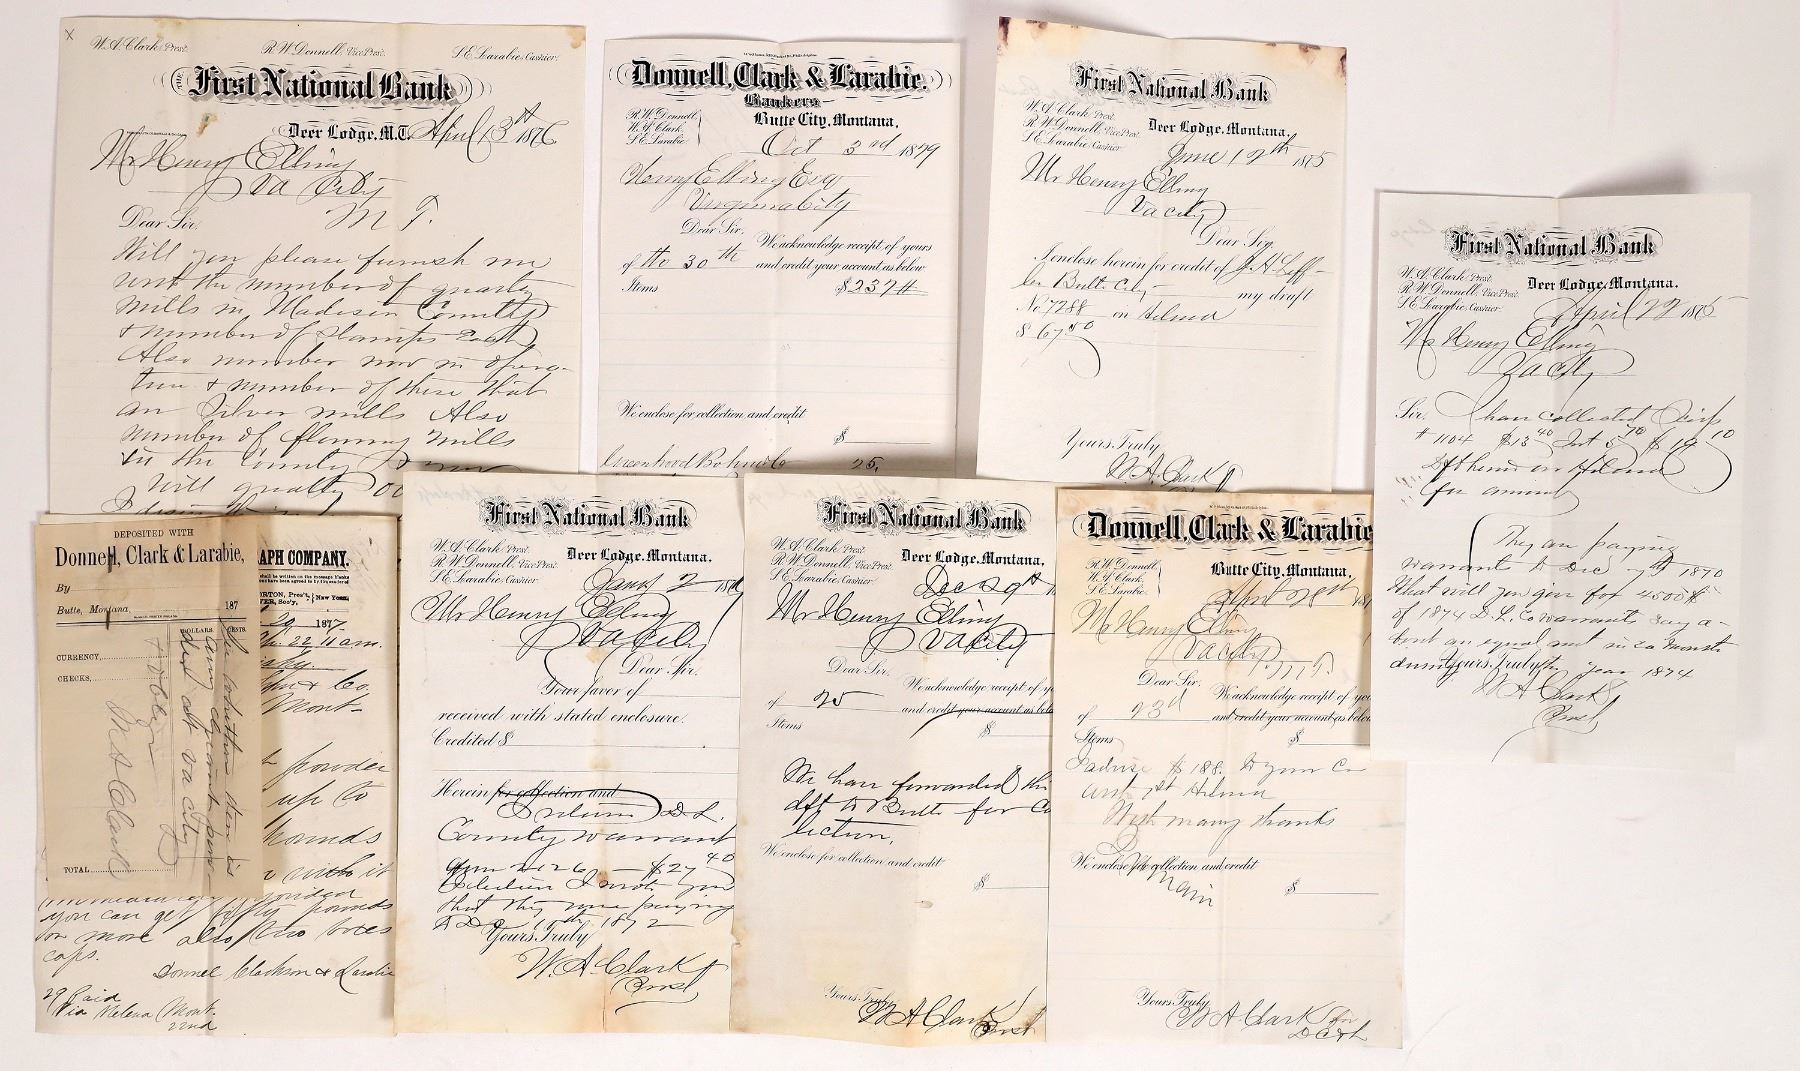 X
W. A. Clark, Prest. R. W. Donnell, Vice Prest. S. E. Larabie, Cashier.
THE First National Bank
Deer Lodge, M.T. April 13th 1876
Mr Henry Elling
Va City
M T.
Dear Sir.
Will you please furnish me
with the number of quartz
mills in Madison County
& number of stamps each
Also number now in opera-
tion & number of these that
are Silver mills Also
number of flouring mills
in the County
Will greatly
Donnell, Clark & Larabie.
Bankers
R. W. Donnell.
W. A. Clark.
S. E. Larabie.
Butte City, Montana,
Oct 3rd 1879
Henry Elling Esq
Virginia City
Dear Sir.
We acknowledge receipt of yours
of the 30th and credit your account as below
Items $237
We enclose for collection and credit
$
Greenhood Bohm & Co 25.
First National Bank
W. A. Clark, Prest.
R. W. Donnell, Vice Prest.
S. E. Larabie, Cashier
Deer Lodge, Montana.
June 12th 1875
Mr Henry Elling
Va City
Dear Sir.
I enclose herein for credit of J. H. Leff-
ler Butte City my draft
No. 7288 on Helena
$ 67.50
Yours Truly
W. A. Clark
First National Bank
W. A. Clark, Prest.
R. W. Donnell, Vice Prest.
S. E. Larabie, Cashier.
Deer Lodge, Montana.
April 22 1875
Mr Henry Elling
Va City
Sir. I have collected
# 1104 $13 40 Int 5 70 $19 10
Dft herein on Helena
for amount
They are paying
warrants to Dec 7th 1870
What will you give for 4500$
of 1874 D. L. Co warrants say a-
bout an equal amt in ea month
during the year 1874
Yours Truly
W A Clark
Prest
DEPOSITED WITH
Donnell, Clark & Larabie,
By
Butte, Montana, 187
DOLLARS. CENTS.
CURRENCY
CHECKS
TOTAL
W A Clark
APH COMPANY.
ORTON, Pres't,
TER, Sec'y, New York.
29 1877.
22 11 am.
& Co.
Mont
powder
up to
pounds
with it
you can get fifty pounds
or more also two boxes
caps.
Donnel Clarkson & Larabie
29 Paid
Via Helena Mont.
22nd
First National Bank
W. A. Clark, Prest.
R. W. Donnell, Vice Prest.
S. E. Larabie, Cashier
Deer Lodge, Montana.
Jany 2 187
Mr Henry Elling
Va City
Dear Sir.
Your favor of
received with stated enclosure.
Credited $
Herein for collection and
Return D. L.
County warrant
$27 40
that they were paying
to Dec 10th 1872
Yours Truly
W. A. Clark
Prest
First National Bank
W. A. Clark, Prest.
R. W. Donnell, Vice Prest.
S. E. Larabie, Cashier.
Deer Lodge, Montana
Dec 29th
Mr Henry Elling
Va City
Dear Sir.
We acknowledge receipt of y
of 25 and credit your account as belo
Items $
We have forwarded this
dft to Butte for Co
lection,
We enclose for collection and credit
$
Yours Truly
W A Clark Prest
Donnell, Clark & Larabie
R. W. Donnell
W. A. Clark.
S. E. Larabie.
Butte City, Montana.
April 28th 18
Mr Henry Elling
Va City M T.
Dear Sir.
We acknowledge receipt of you
of 23d and credit your account as below
Items $
I advise $188. to your Cr
with 1st Helena
With many thanks
We enclose for collection and credit
again $
Yours Truly
W A Clark for
D C & L